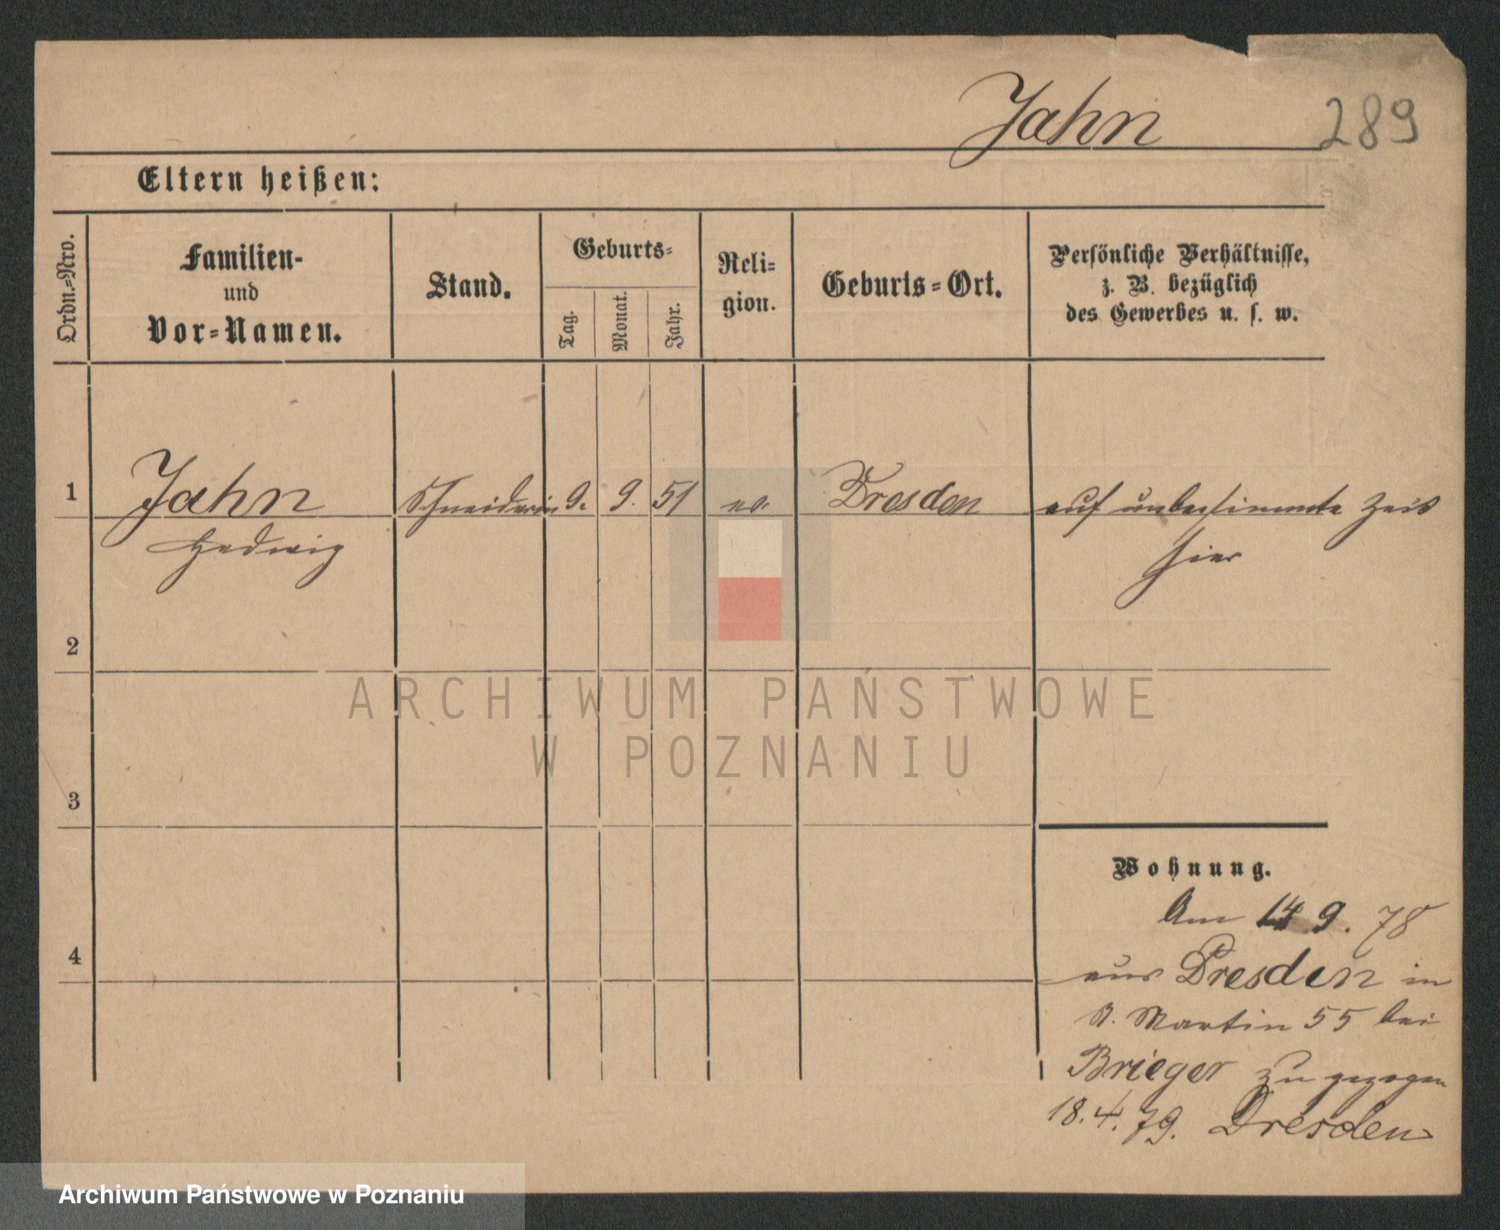 Jahn 289
Eltern heißen:
Ordn.-Nro.
Familien-
und
Vor-Namen.
Stand.
Geburts-
Tag.
Monat.
Jahr.
Reli-
gion.
Geburts-Ort.
Persönliche Verhältnisse,
z. B. bezüglich
des Gewerbes u. s. w.
1 Jahn Schneiderin 9. 9. 51 ev. Dresden auf unbestimmte Zeit
Hedwig hier
2
ARCHIWUM PAŃSTWOWE
W POZNANIU
3
Wohnung.
Am 14 9. 78
4
aus Dresden in
St. Martin 55 bei
Brieger zu gezogen
18.4.79. Dresden
Archiwum Państwowe w Poznaniu